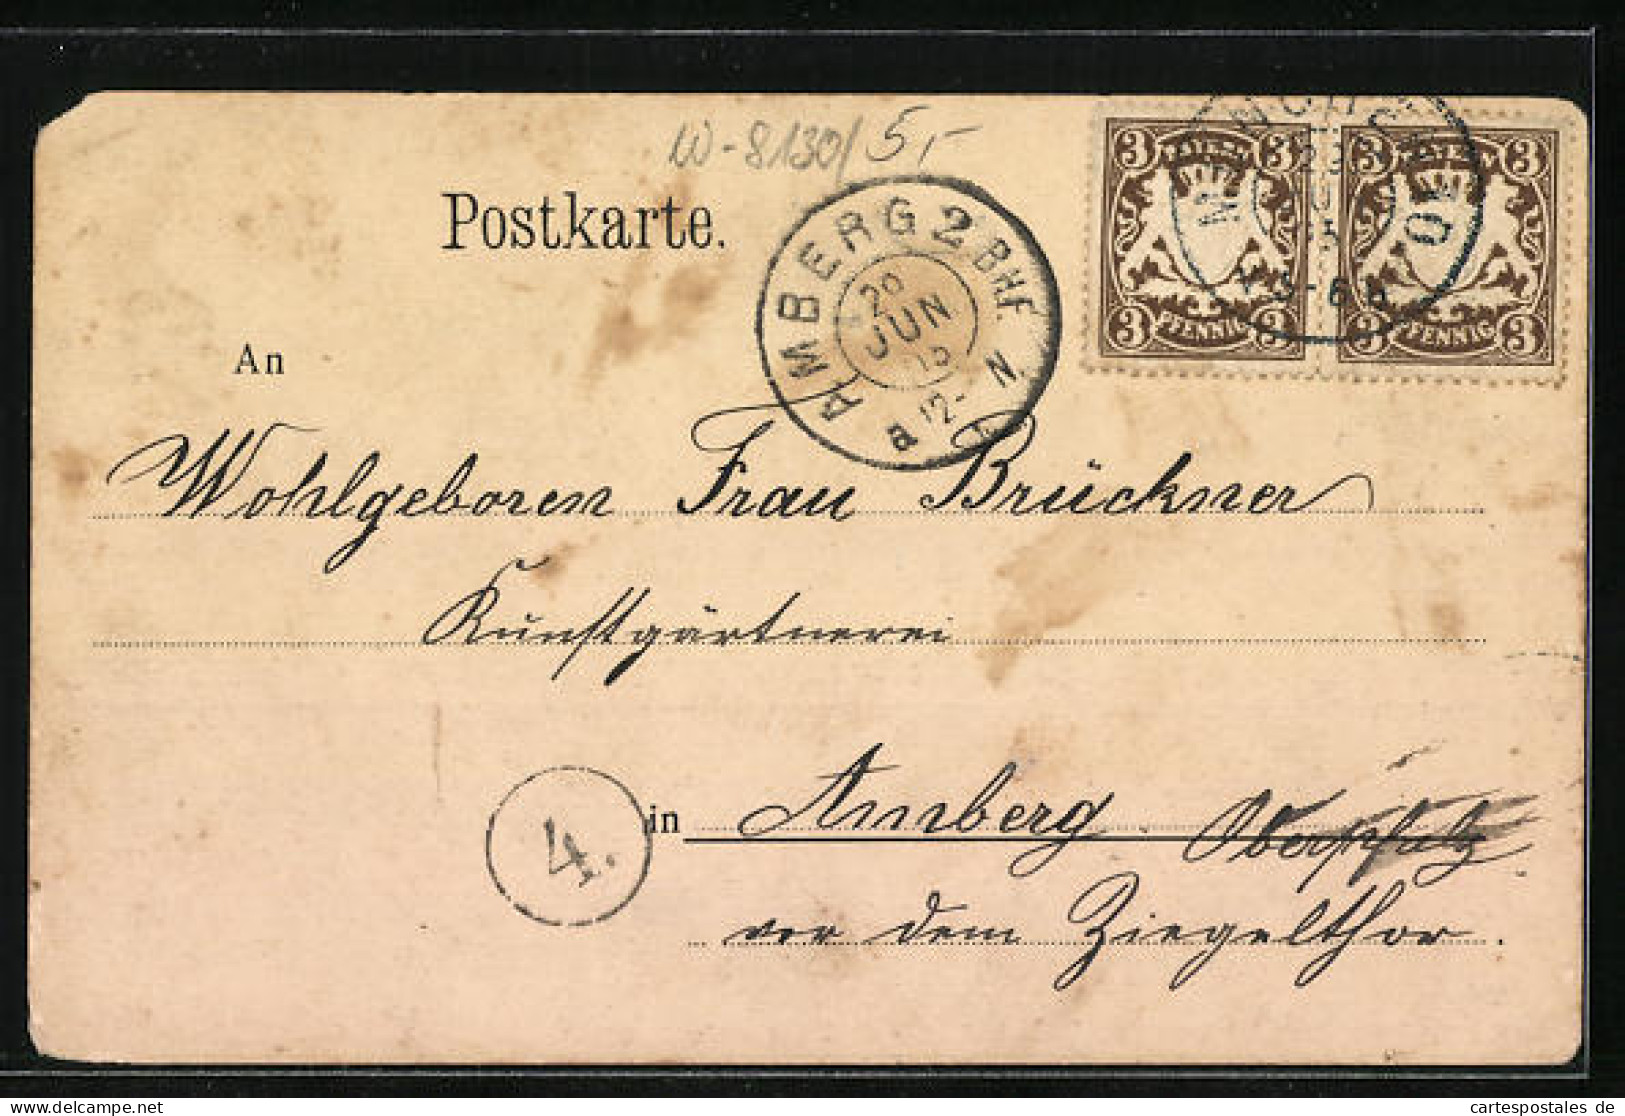 W-8130/5,-
Postkarte.
AMBERG 2 BHF
20
JUN
a 12-1 N
3 BAYERN 3
3 PFENNIG 3
3 BAYERN 3
3 PFENNIG 3
An
Wohlgeboren Frau Brückner
Kunstgärtnerei
4.
in Amberg Oberpfalz
vor dem Ziegelthor.
cartespostales de